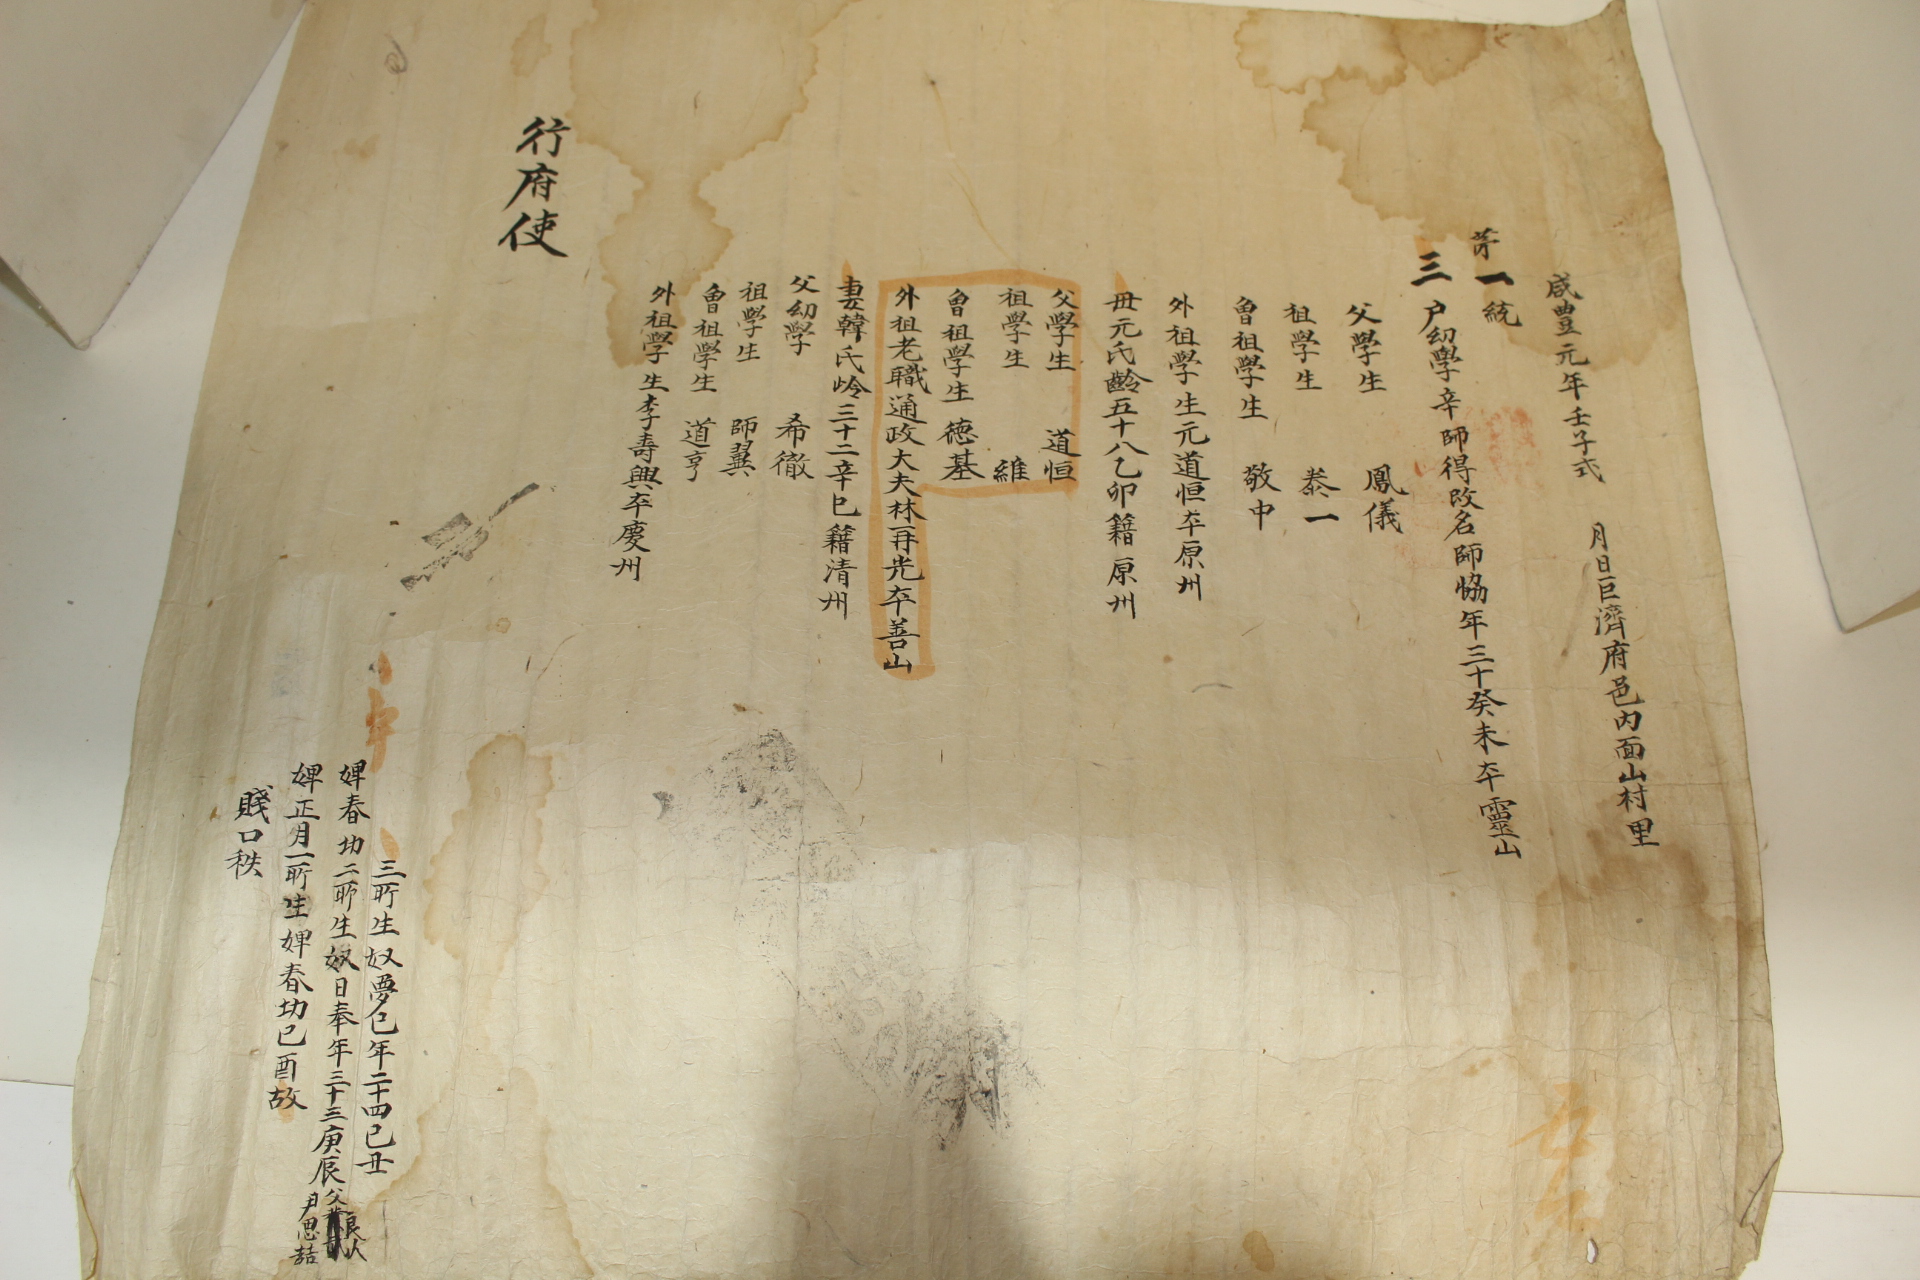 咸豊元年壬子式 月日巨濟府邑內面山村里
第一統
三戶幼學辛師得改名師恊年三十癸未夲靈山
父學生 鳳儀
祖學生 泰一
曾祖學生 敬中
外祖學生元道恒夲原州
母元氏齡五十八乙卯籍原州
父學生 道恒
祖學生 維
曾祖學生 德基
外祖老職通政大夫林再光夲善山
妻韓氏岭三十二辛巳籍清州
父幼學 希徹
祖學生 師翼
曾祖學生 道亨
外祖學生李壽興夲慶州
行府使
三所生奴夢乭年二十四己丑
婢春功二所生奴日奉年三十三庚辰父良人尹思喆
婢正月一所生婢春功己酉故
賤口秩